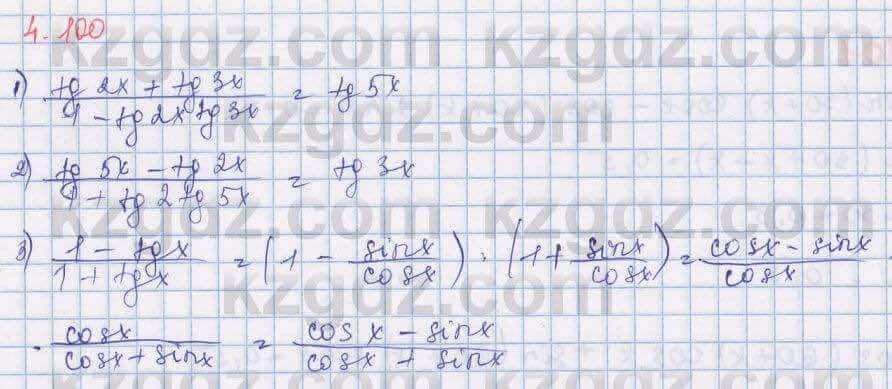 4.100
1) (tg 2x + tg 3x)/(1 - tg 2x tg 3x) = tg 5x
2) (tg 5x - tg 2x)/(1 + tg 2 tg 5x) = tg 3x
3) (1 - tg x)/(1 + tg x) = (1 - sin x/cos x) : (1 + sin x/cos x) = (cos x - sin x)/cos x ·
· cos x/(cos x + sin x) = (cos x - sin x)/(cos x + sin x)
kzgdz.com kzgdz.com
kzgdz.com
kzgdz.com
kzgdz.com
kzgdz.com